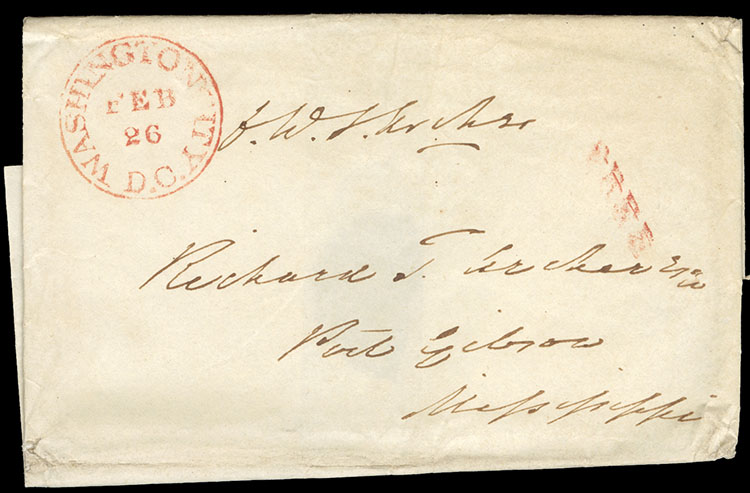 WASHINGTON CITY. D.C.
FEB
26
FREE
Richard T. Archer Esq
Port Gibson
Mississippi